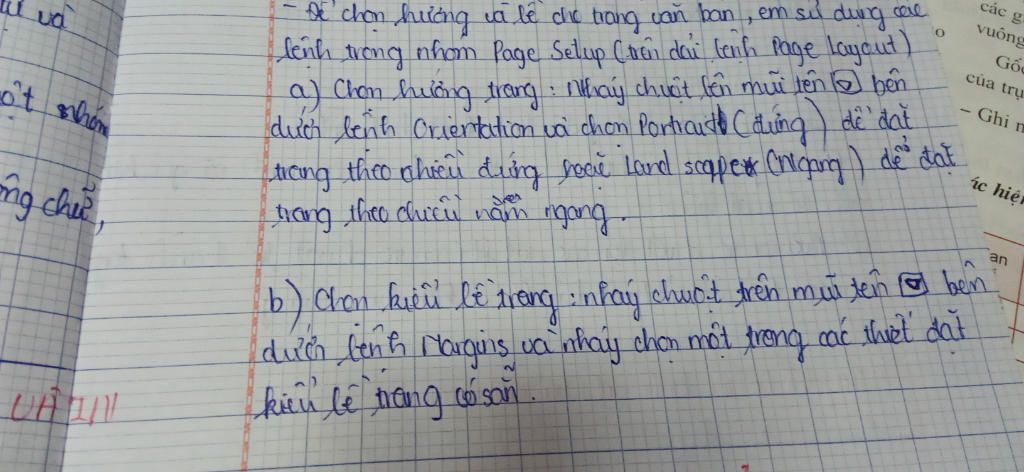 - Để chọn hướng và lề cho trang văn bản, em sử dụng các
lệnh trong nhóm Page Setup (trên dải lệnh Page Layout)
a) Chọn hướng trang: Nháy chuột lên mũi tên bên
dưới lệnh Orientation và chọn Portrait (đứng) để đặt
trang theo chiều đứng hoặc Land scape (ngang) để đặt
trang theo chiều nằm ngang.
b) Chọn kiểu lề trang: nháy chuột trên mũi tên bên
dưới lệnh Margins và nháy chọn một trong các thiết đặt
kiểu lề trang có sẵn.
và
ột nhóm
ng chữ,
các g
vuông
Gó
của trụ
- Ghi n
ức hiện
an